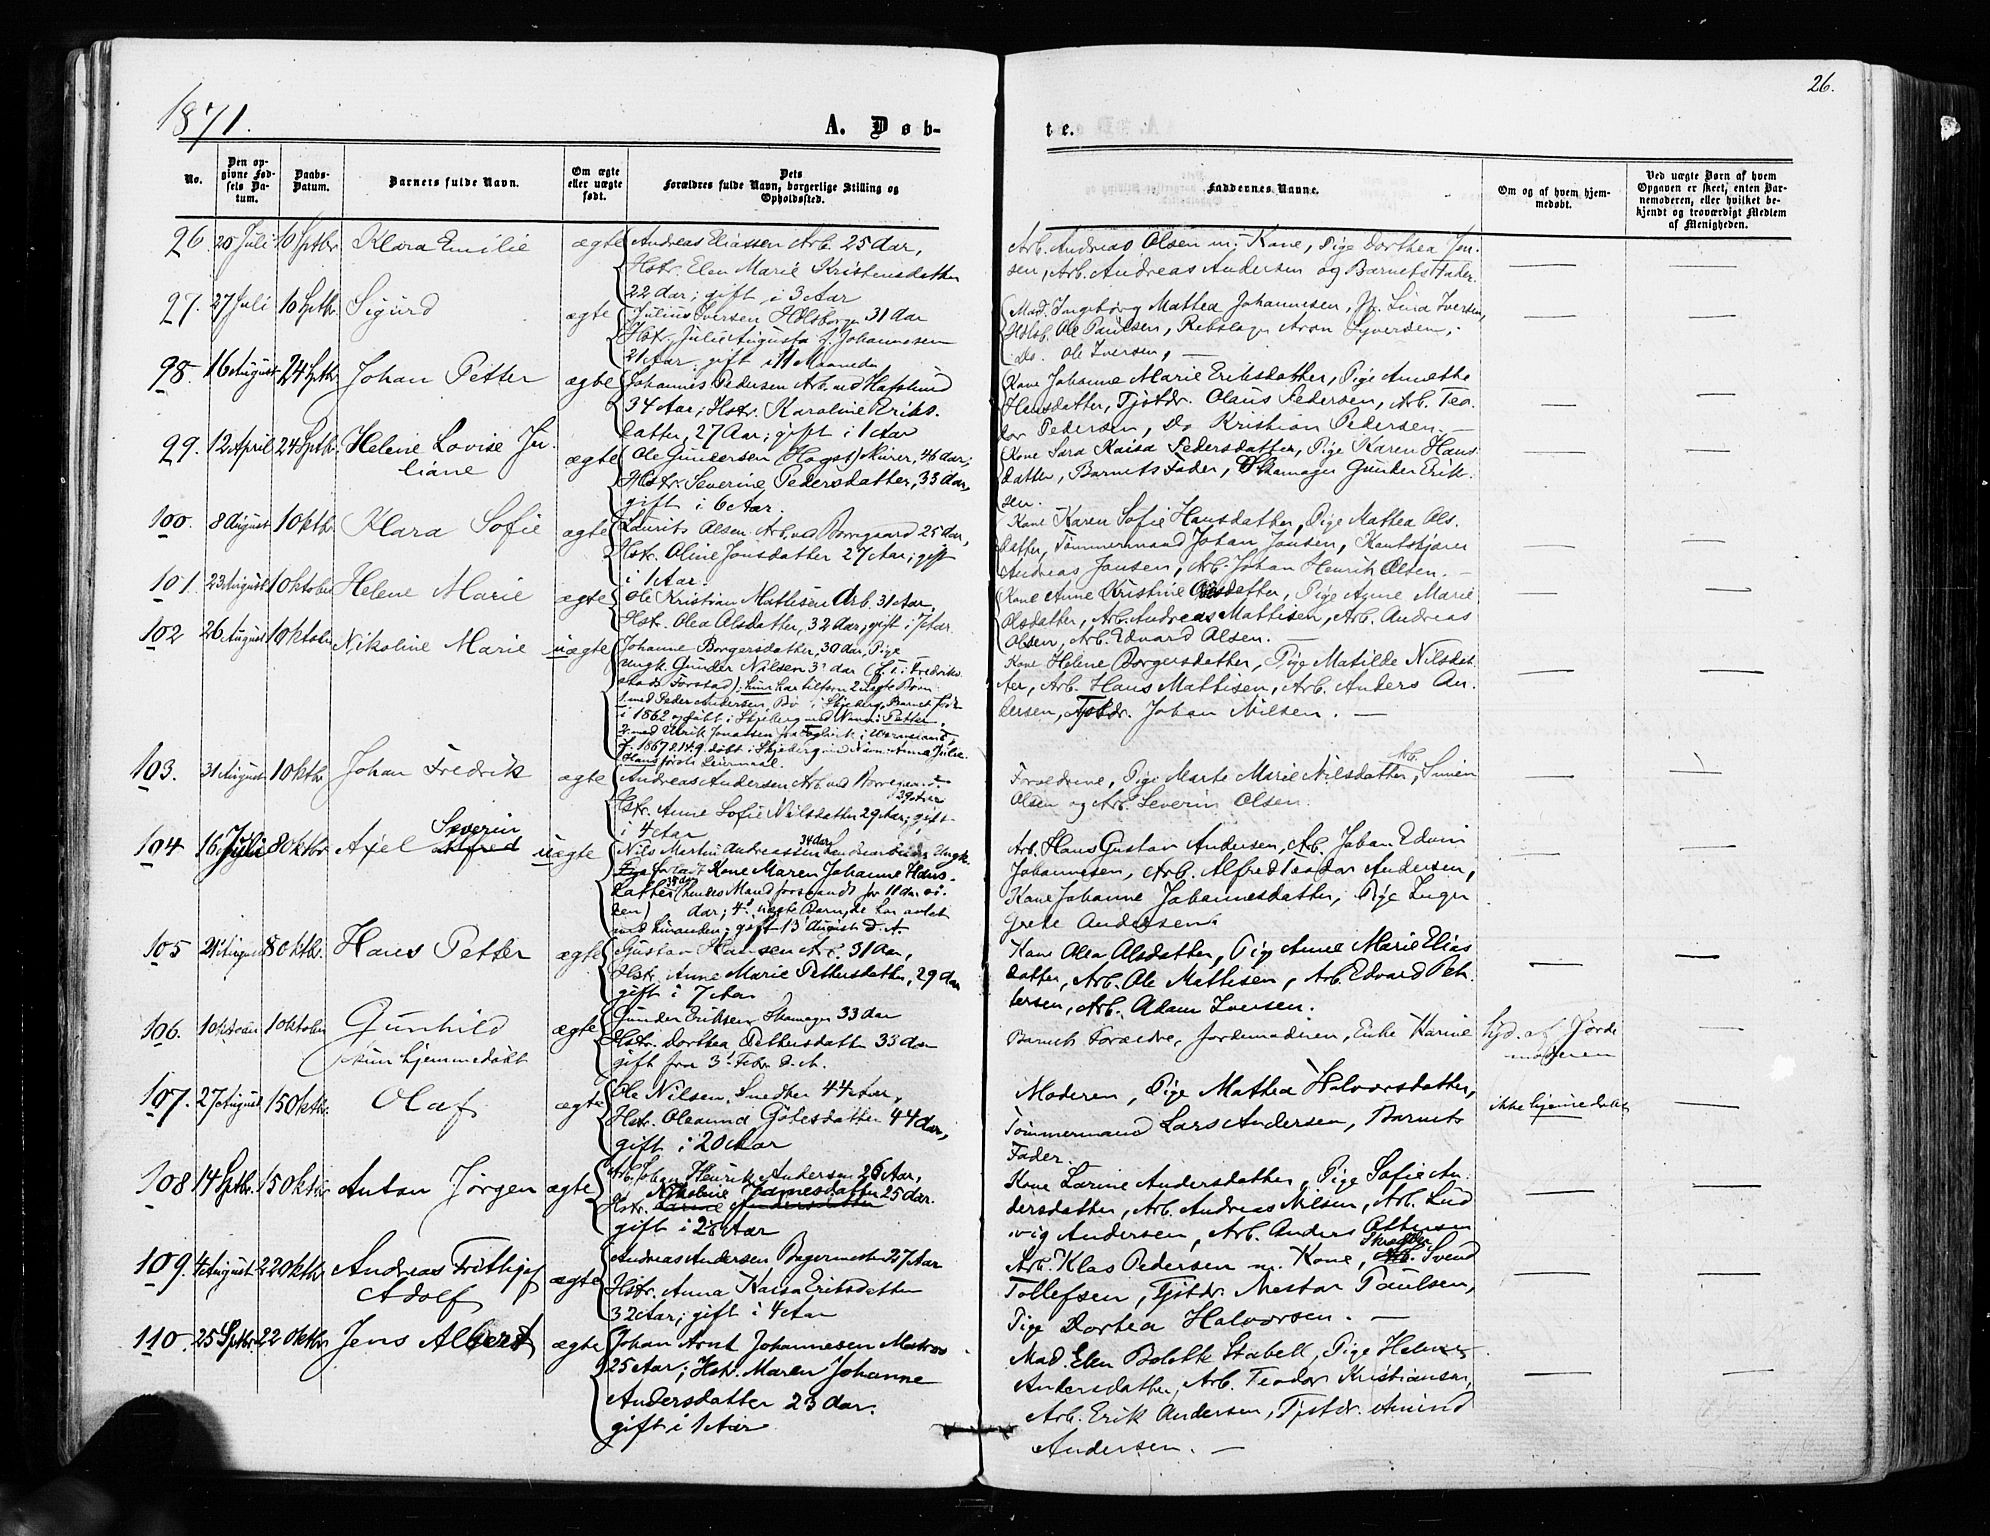 1871.
A. Døb-
te.
26.
No.
Den op-
givne Fød-
sels Da-
tum.
Daabs-
Datum.
Barnets fulde Navn.
Om ægte
eller uægte
født.
Dets
Forældres fulde Navn, borgerlige Stilling og
Opholdssted.
Faddernes Navne.
Om og af hvem hjem-
medøbt.
Ved uægte Børn af hvem
Opgaven er skeet, enten Bar-
nemoderen, eller hvilket be-
kjendt og troværdigt Medlem
af Menigheden.
96. 20 Juli 10 Sptbr. Klara Emilie ægte
Andreas Eliassen Arb. 25 Aar,
Hstr. Elen Marie Kristensdatter
22 Aar; gift i 3 Aar
Arb. Andreas Olsen m: Kone, Pige Dorthea Jen-
sen, Arb. Andreas Andersen og Barnets Fader.
97. 27 Juli 10 Sptbr. Sigurd ægte
Julius Iversen 31 Aar
Hstr. Julie Augusta f. Johannesen
21 Aar. gift i 11 Maaneder
Mad. Ingebörg Mathea Johannesen, Lina Iversen,
Ole Paulsen, Rebslager Aron Syversen,
Do. Ole Iversen, —
98. 16 August 24 Sptbr. Johan Petter ægte
Johannes Pedersen Arb. ved Hafslund
34 Aar; Hstr. Karoline Eriks-
datter 27 Aar; gift i 1 Aar
Kone Johanne Marie Eriksdatter, Pige Annethe
Hansdatter, Tjstdr. Olaus Pedersen, Arb. Teo-
dor Pedersen, Do Kristian Pedersen. —
99. 12 April 24 Sptbr. Helene Lovise Ju-
liane ægte
Ole Gundersen (Hogst) Murer, 46 Aar;
Hstr. Severine Pedersdatter, 33 Aar,
gift i 6 Aar.
Kone Sara Kaisa Pedersdatter, Pige Karen Hans-
datter, Barnets Fader, Skomager Gunder Erik-
sen.
100. 8 August 1 Oktbr Klara Sofie ægte
Laurits Olsen Arb. ved Borregaard 25 Aar,
Hstr. Oline Jonsdatter 27 Aar; gift
i 1 Aar.
Kone Karen Sofie Hansdatter, Pige Mathea Ols-
datter, Tömmermand Johan Jonsen,
Andreas Jonsen, Arb. Johan Henrik Olsen. —
101 23 August 1 Oktober Helene Marie ægte
Ole Kristian Mathisen Arb. 31 Aar,
Hstr. Olea Olsdatter, 32 Aar; gift i 7 Aar.
Kone Anne Kristine Olsdatter, Pige Anne Marie
Olsdatter, Arb. Andreas Mattisen, Arb. Andreas
Olsen, Arb. Edvard Olsen. —
102 26 August 1 Oktober Nikoline Marie uægte
Johanne Borgersdatter, 30 Aar, Pige
Ungk. Gunder Nilsen 31 Aar (L. i Fredriks-
stads Forstad); hun har tilforn 2 uægte Børn:
1 med Peder Andersen, i Skjeberg, Barnet født
i 1862 og døbt i Skjeberg med Navn: Petter,
2 med Ulrik Jonassen fra
f. 1867 døbt i Skjeberg med Navn Anna Julie.
Hans første Leiermaal.
Kone Helene Borgersdatter, Pige Matilde Nilsdat-
ter, Arb. Hans Mattisen, Arb. Anders An-
dersen, Tjstdr. Johan Nilsen. —
103. 31 August 1 Oktbr Johan Fredrik ægte
Andreas Andersen Arb. ved Borregaard.
29 Aar
Hstr. Anne Sofie Nilsdatter 29 Aar; gift
i 4 Aar
Forældrene, Pige Marte Marie Nilsdatter, Arb. Simen
Olsen og Arb. Severin Olsen.
104 16 Juli 8 Oktbr. Axel Severin Alfred uægte
Nils Martin Andreassen 34 Aar Ungk.
forladt Kone Maren Johanne Hans-
datter 38 Aar (hendes Mand forsvandt for 11 Aar si-
den) 4de uægte Barn, de har avlet
med hinanden; gift 13 August d. A.
Arb. Hans Gustav Andersen, Arb. Johan Edvin
Johannesen, Arb. Alfred Teodor Andersen,
Kone Johanne Johannesdatter, Pige Inger
Grete Andersen.
105 21 August 8 Oktbr. Hans Petter ægte
Gustav Hansen Arb. 31 Aar,
Hstr. Anne Marie Pettersdatter, 29 Aar
gift i 7 Aar
Kone Olea Olsdatter, Pige Anne Marie Elias-
datter, Arb. Ole Mattisen, Arb. Edvard Pet-
tersen, Arb. Adam Iversen.
106. 1 Oktober 1 Oktober Gunhild
kun hjemmedøbt ægte
Gunder Eriksen Skomager 33 Aar
Hstr. Dorthea Pettersdatter 33 Aar
gift fra 3 Febr. d. A.
Barnets Forældre, Jordemoderen, Enke Karine
hjd. af Jorde-
moderen
107. 27 August 15 Oktbr. Olaf ægte
Ole Nilsen, Smed 44 Aar,
Hstr. Oleanna Götesdatter 44 Aar,
gift i 20 Aar
Moderen, Pige Mathea Halvorsdatter,
Tömmermand Lars Andersen, Barnets
Fader.
ikke hjemmedøbt
108 14 Sptbr. 15 Oktbr Anton Jörgen ægte
Arb. Johan Henrik Andersen 26 Aar,
Nikoline Hansdatter 25 Aar.
Hstr. Larine Andersdatter
gift i 2 Aar
Kone Larine Andersdatter, Pige Sofie An-
dersdatter, Arb. Andreas Nilsen, Arb. Lud-
vig Andersen, Arb. Anders Ottersen
109. 4 August 22 Oktbr Andreas Frithjof
Adolf ægte
Andreas Andersen Bagermester 27 Aar
Hstr. Anna Kaisa Eriksdatter
32 Aar; gift i 4 Aar
Arb. Klas Pedersen m. Kone, Skrædder Arb. Svend
Tollefsen, Tjstdr. Nestor Paulsen,
Pige Dorthea Halvorsen. —
110. 25 Sptbr 22 Oktbr Jens Albert ægte
Johan Arnt Johannesen Matros
25 Aar; Hstr. Maren Johanne
Andersdatter 23 Aar.
gift i 1 Aar
Mad. Elen Bolette Stabell, Pige Helene
Andersdatter, Arb. Teodor Kristiansen,
Arb. Erik Andersen, Tjstdr. Amund
Andersen. —